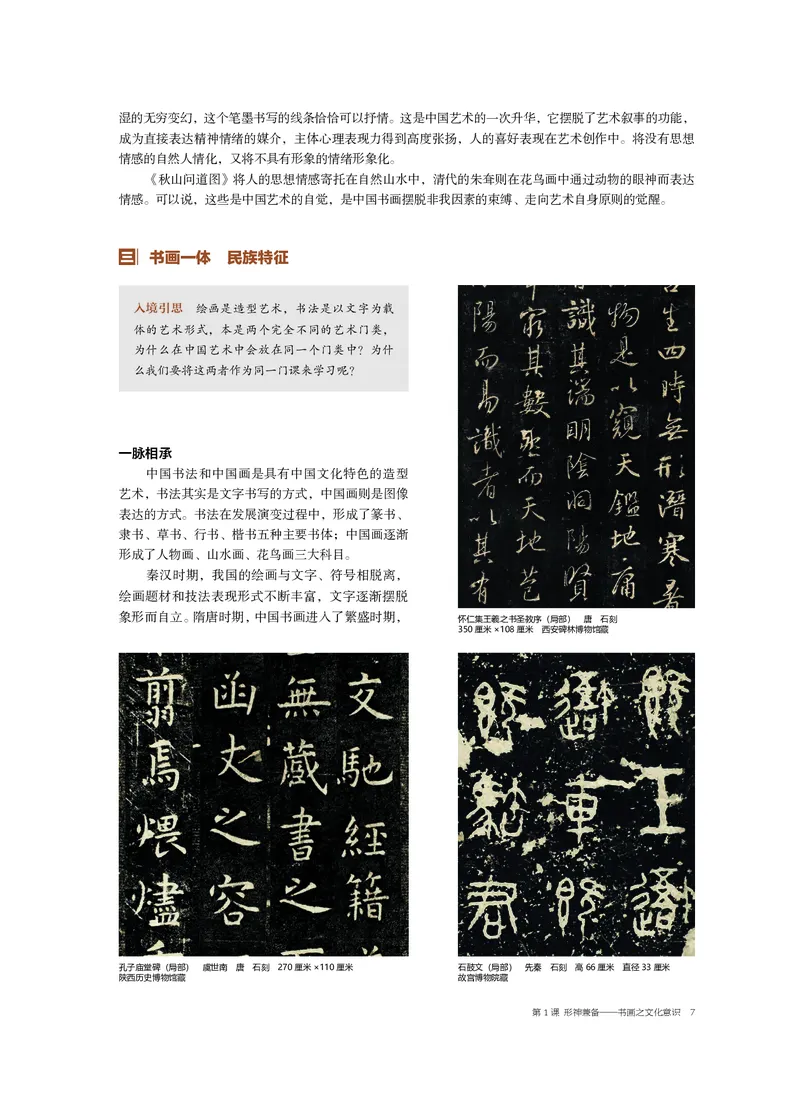 湿的无穷变幻，这个笔墨书写的线条恰恰可以抒情。这是中国艺术的一次升华，它摆脱了艺术叙事的功能，
成为直接表达精神情绪的媒介，主体心理表现力得到高度张扬，人的喜好表现在艺术创作中。将没有思想
情感的自然人情化，又将不具有形象的情绪形象化。
《秋山问道图》将人的思想情感寄托在自然山水中，清代的朱耷则在花鸟画中通过动物的眼神而表达
情感。可以说，这些是中国艺术的自觉，是中国书画摆脱非我因素的束缚、走向艺术自身原则的觉醒。
三 书画一体 民族特征
入境引思 绘画是造型艺术，书法是以文字为载
体的艺术形式，本是两个完全不同的艺术门类，
为什么在中国艺术中会放在同一个门类中？为什
么我们要将这两者作为同一门课来学习呢？
一脉相承
中国书法和中国画是具有中国文化特色的造型
艺术，书法其实是文字书写的方式，中国画则是图像
表达的方式。书法在发展演变过程中，形成了篆书、
隶书、草书、行书、楷书五种主要书体；中国画逐渐
形成了人物画、山水画、花鸟画三大科目。
秦汉时期，我国的绘画与文字、符号相脱离，
绘画题材和技法表现形式不断丰富，文字逐渐摆脱
象形而自立。隋唐时期，中国书画进入了繁盛时期，
生四時無形潛寒暑
物是以窺天鑑地庸
識其端明陰洞陽賢
窮其數然而天地苞
陽而易識者以其有
怀仁集王羲之书圣教序（局部） 唐 石刻
350 厘米 ×108 厘米 西安碑林博物馆藏
文馳經籍
無藏書之
函丈之容
翦焉煨燼
孔子庙堂碑（局部） 虞世南 唐 石刻 270 厘米 ×110 厘米
陕西历史博物馆藏
王
車
君
石鼓文（局部） 先秦 石刻 高 66 厘米 直径 33 厘米
故宫博物院藏
第 1 课 形神兼备——书画之文化意识 7